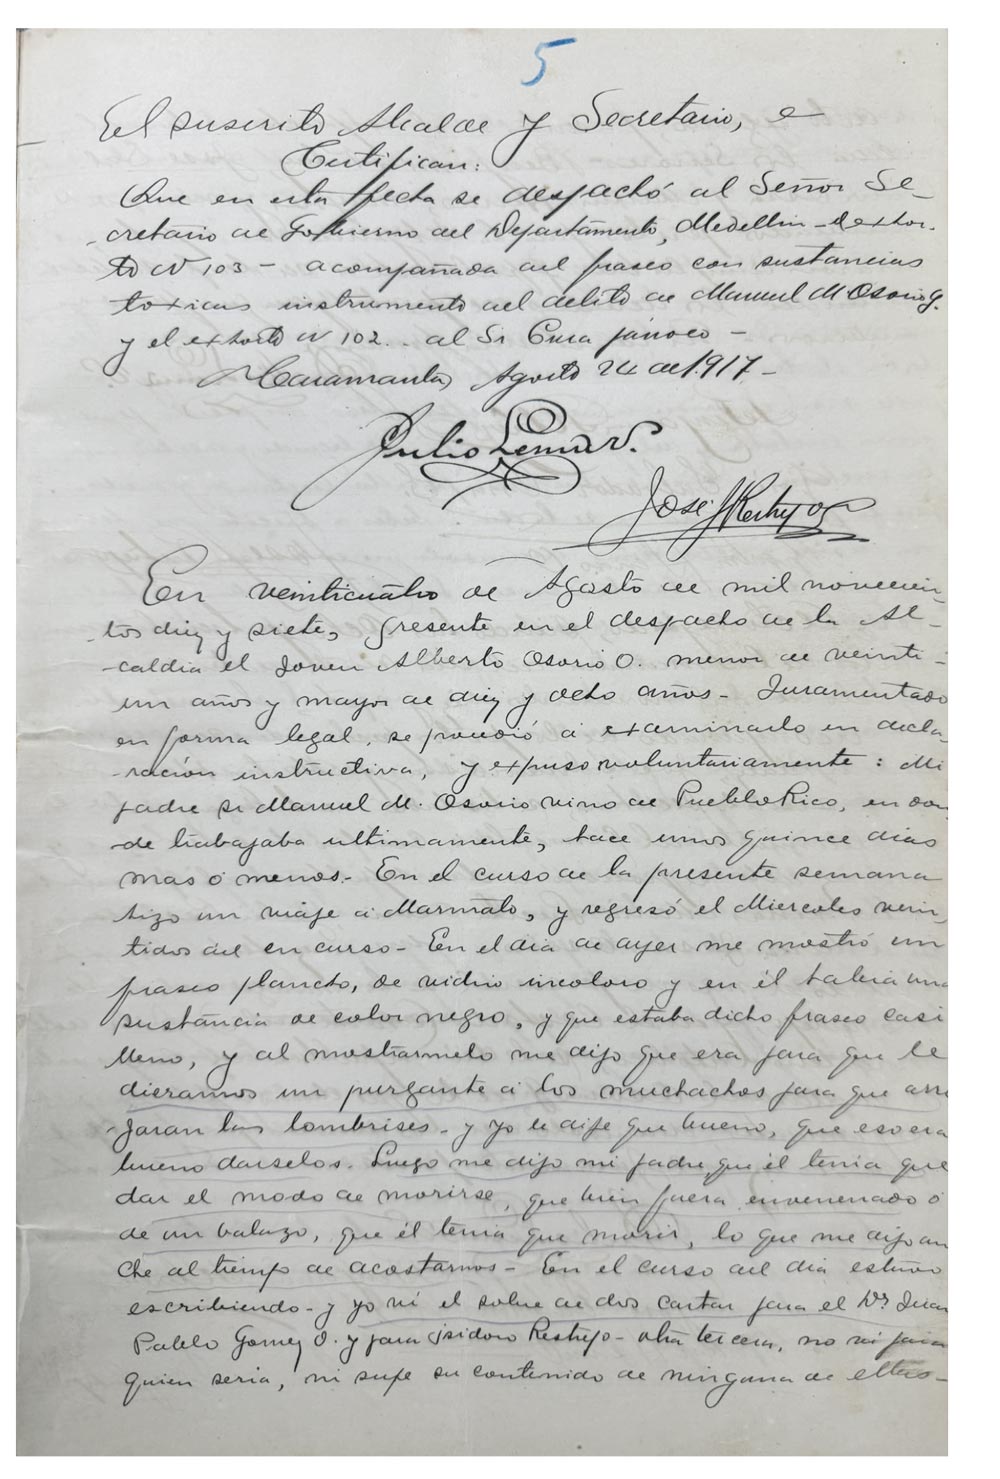 5
El suscrito Alcalde y Secretario, e
Certifican:
Que en esta fecha se despachó al Señor Se-
-cretario de Gobierno del Departamento, Medellin - el exhor-
to N 103 - acompañada del frasco con sustancias
toxicas instrumento del delito de Manuel M Osorio G.
y el exhorto N 102.. al Sr Cura párroco -
Caramanta, Agosto 24 de 1.917 -
Julio Lemus V.
José J Restrepo
En veinticuatro de Agosto de mil novecien-
-tos diez y siete, presente en el despacho de la Al-
-caldia el joven Alberto Osorio O. menor de veinti-
un años y mayor de diez y ocho años - Juramentado
en forma legal, se procedió á examinarlo en decla-
-ración instructiva, y expuso voluntariamente: Mi
padre Sr Manuel M. Osorio vino de Pueblo Rico, en don
-de trabajaba ultimamente, hace unos quince dias
mas ó menos.- En el curso de la presente semana
hizo un viaje á Marmato, y regresó el Miercoles vein-
tidos del en curso - En el dia de ayer me mostró un
frasco plancho, de vidrio incoloro y en él habia una
sustáncia de color negro, y que estaba dicho frasco casi
lleno, y al mostrarmelo me dijo que era para que le
dieramos un purgante á los muchachos para que arro
-jaran las lombrises - y yo le dije que bueno, que eso era
bueno darselos. Luego me dijo mi padre que él tenia que
dar el modo de morirse, que bien fuera envenenado ó
de un balazo, que él tenia que morir, lo que me dijo ano
che al tiempo de acostarnos - En el curso del dia estuvo
escribiendo - y yo ví el sobre de dos cartas para el Dr. Juan
Pablo Gomez O. y para Isidoro Restrepo - otra tercera, no ví para
quien seria, ni supe su contenido de ninguna de ellas -